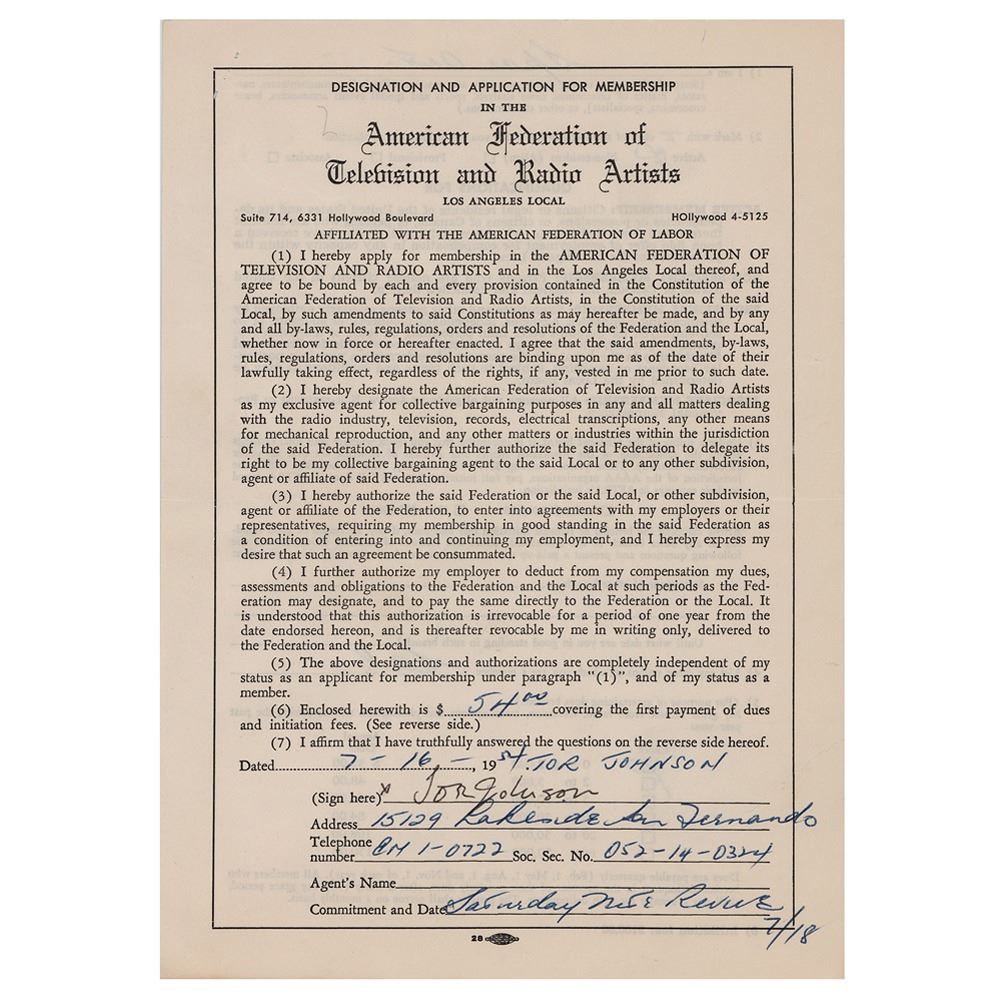 DESIGNATION AND APPLICATION FOR MEMBERSHIP
IN THE
American Federation of
Television and Radio Artists
LOS ANGELES LOCAL
Suite 714, 6331 Hollywood Boulevard HOllywood 4-5125
AFFILIATED WITH THE AMERICAN FEDERATION OF LABOR
(1) I hereby apply for membership in the AMERICAN FEDERATION OF
TELEVISION AND RADIO ARTISTS and in the Los Angeles Local thereof, and
agree to be bound by each and every provision contained in the Constitution of the
American Federation of Television and Radio Artists, in the Constitution of the said
Local, by such amendments to said Constitutions as may hereafter be made, and by any
and all by-laws, rules, regulations, orders and resolutions of the Federation and the Local,
whether now in force or hereafter enacted. I agree that the said amendments, by-laws,
rules, regulations, orders and resolutions are binding upon me as of the date of their
lawfully taking effect, regardless of the rights, if any, vested in me prior to such date.
(2) I hereby designate the American Federation of Television and Radio Artists
as my exclusive agent for collective bargaining purposes in any and all matters dealing
with the radio industry, television, records, electrical transcriptions, any other means
for mechanical reproduction, and any other matters or industries within the jurisdiction
of the said Federation. I hereby further authorize the said Federation to delegate its
right to be my collective bargaining agent to the said Local or to any other subdivision,
agent or affiliate of said Federation.
(3) I hereby authorize the said Federation or the said Local, or other subdivision,
agent or affiliate of the Federation, to enter into agreements with my employers or their
representatives, requiring my membership in good standing in the said Federation as
a condition of entering into and continuing my employment, and I hereby express my
desire that such an agreement be consummated.
(4) I further authorize my employer to deduct from my compensation my dues,
assessments and obligations to the Federation and the Local at such periods as the Fed-
eration may designate, and to pay the same directly to the Federation or the Local. It
is understood that this authorization is irrevocable for a period of one year from the
date endorsed hereon, and is thereafter revocable by me in writing only, delivered to
the Federation and the Local.
(5) The above designations and authorizations are completely independent of my
status as an applicant for membership under paragraph "(1)", and of my status as a
member.
(6) Enclosed herewith is $ 54 00 covering the first payment of dues
and initiation fees. (See reverse side.)
(7) I affirm that I have truthfully answered the questions on the reverse side hereof.
Dated 7 - 16 -, 1954. TOR JOHNSON
(Sign here) x Tor Johnson
Address 15129 Lakeside San Fernando
Telephone
number EM 1-0722 Soc. Sec. No. 052-14-0324
Agent's Name
Commitment and Date Saturday Nite Revue
7/18
28